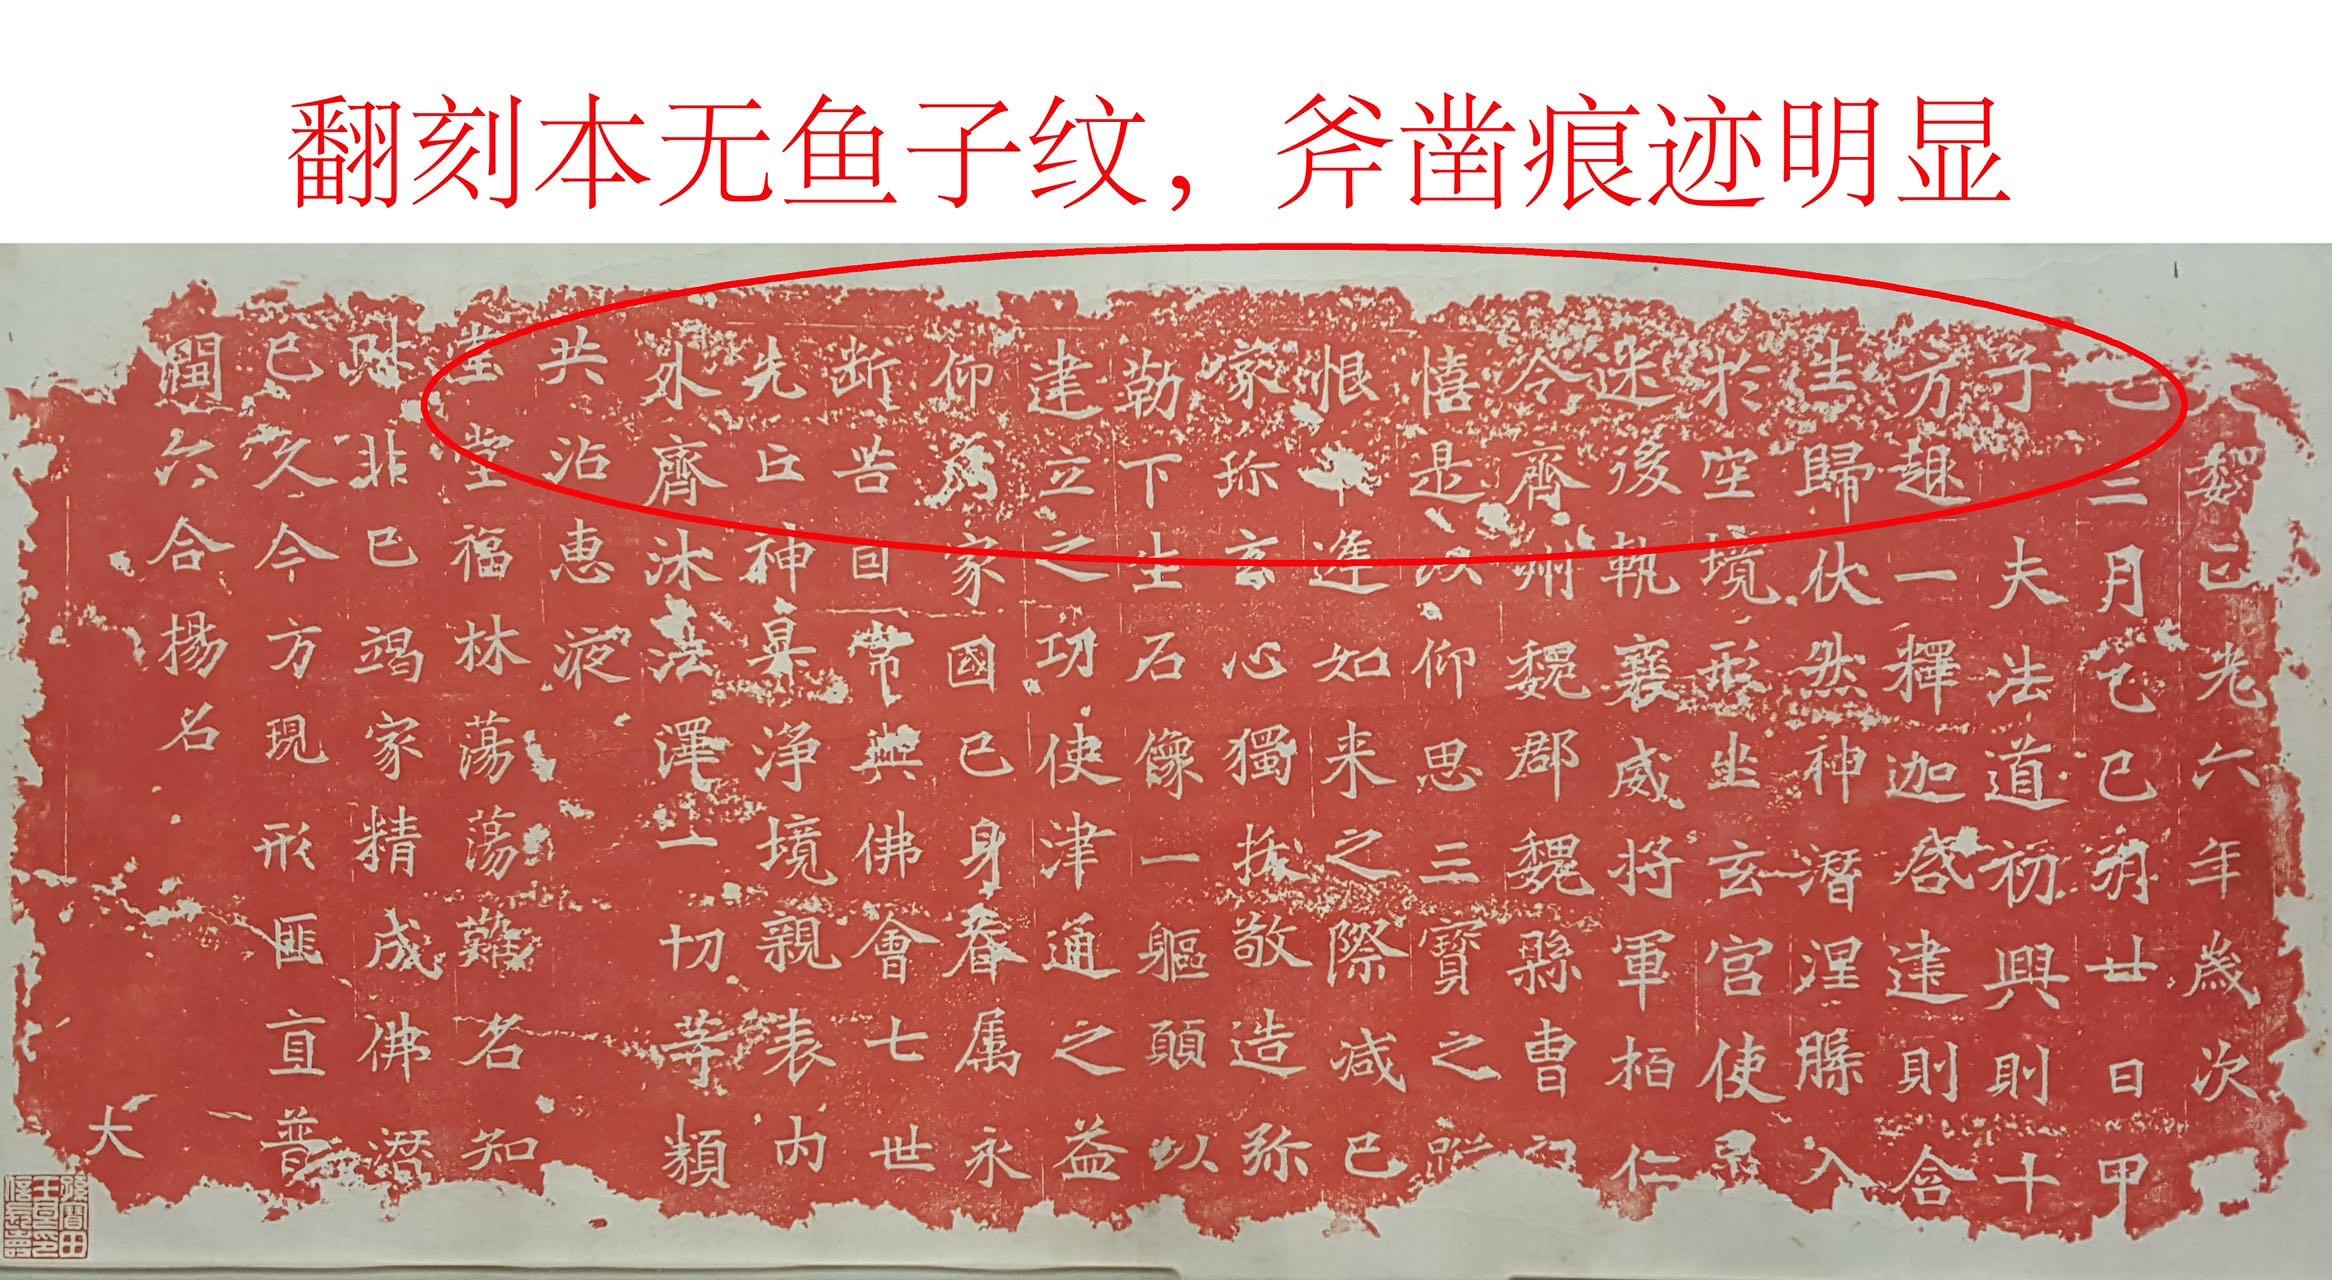 翻刻本无鱼子纹，斧凿痕迹明显
大魏正光六年歲次
乙三月乙巳朔廿日甲
子夫法道初興則十
方趣一釋迦啓建則含
生歸伏然神潛涅槃入
於空境形坐玄宮使
迷後執襄威將軍栢仁
令齊州魏郡魏縣曹
憘是以仰思三寶之蹤
恨不進如来之際减已
家珎玄心獨拔敬造弥
勒下生石像一軀頭以
建立之功使津通之益
仰為家國已身眷属永
断苦因常與佛會七世
先亡神真净境親表内
外齊沐法澤一切等類
共沾惠液
堂堂福林蕩蕩難名知
财非已竭家精成佛潛
已久今方現形匪直普
闡六合揚名
大